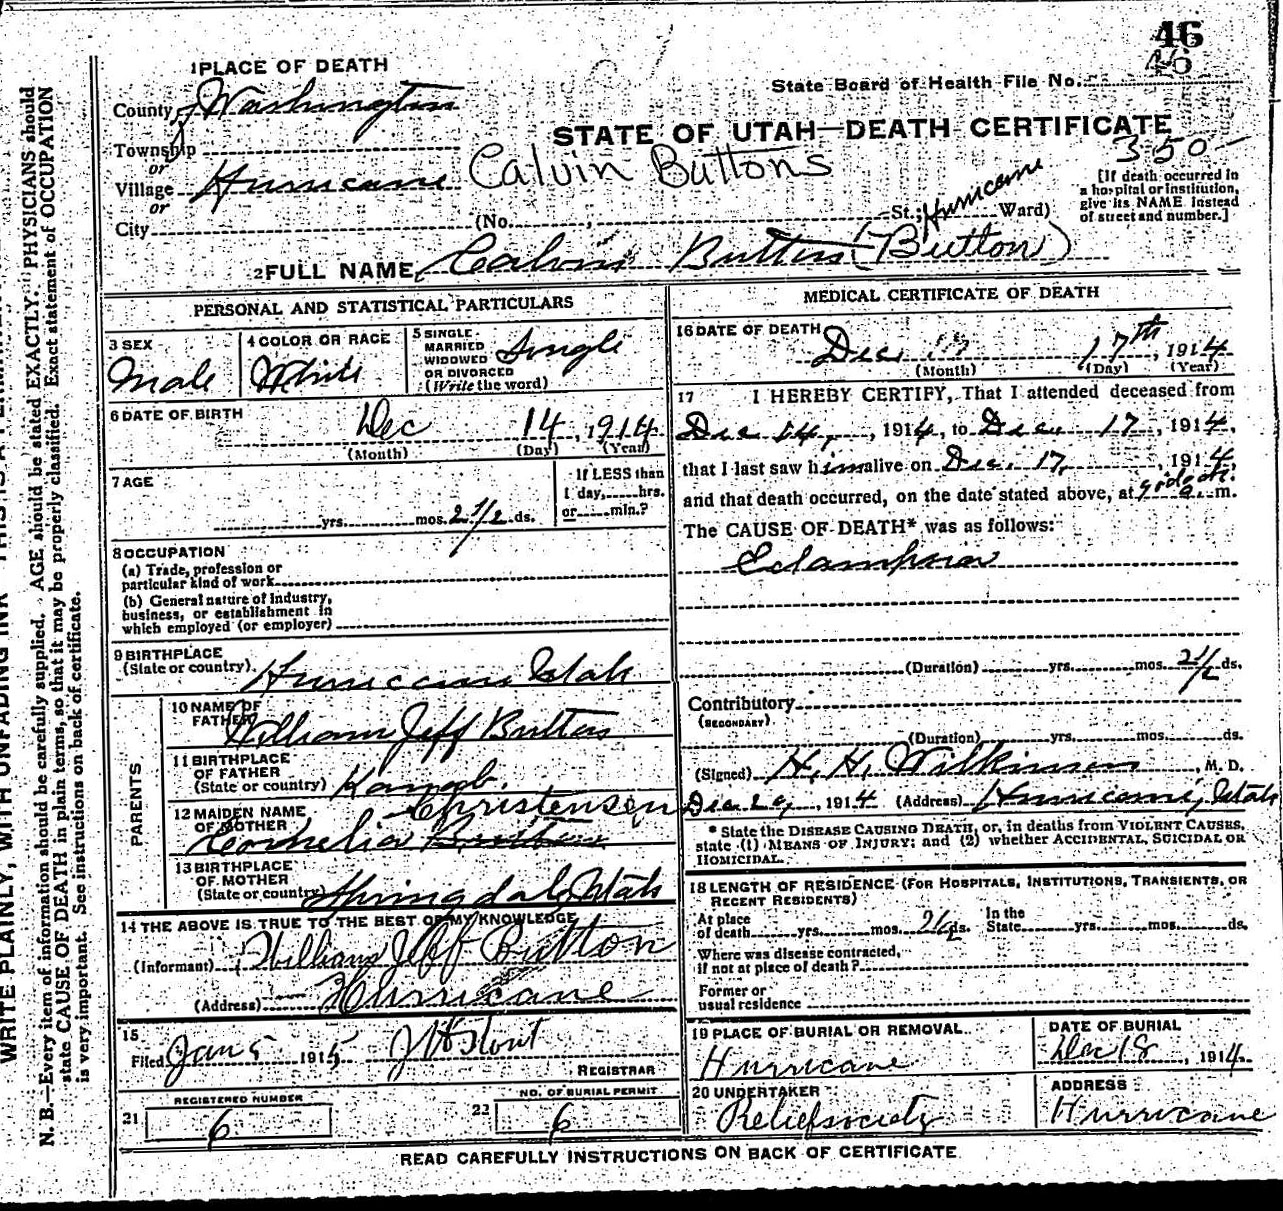 46
46
State Board of Health File No.
STATE OF UTAH—DEATH CERTIFICATE
350-
1 PLACE OF DEATH
County of Washington
Township
or
Village Hurricane
or
City
Calvin Buttons
(No. St.; Hurricane Ward)
[If death occurred in
a hospital or institution,
give its NAME instead
of street and number.]
2 FULL NAME Calvin Buttons (Button)
PERSONAL AND STATISTICAL PARTICULARS
3 SEX
Male
4 COLOR OR RACE
White
5 SINGLE
MARRIED
WIDOWED
OR DIVORCED
(Write the word)
Single
6 DATE OF BIRTH
Dec 14, 1914
(Month) (Day) (Year)
7 AGE
yrs. mos. 2 1/2 ds.
If LESS than
1 day, hrs.
or min.?
8 OCCUPATION
(a) Trade, profession or
particular kind of work
(b) General nature of Industry,
business, or establishment in
which employed (or employer)
9 BIRTHPLACE
(State or country) Hurricane Utah
PARENTS
10 NAME OF
FATHER William Jeff Button
11 BIRTHPLACE
OF FATHER
(State or country) Kanab
12 MAIDEN NAME
OF MOTHER
Christensen
Cornelia Button
13 BIRTHPLACE
OF MOTHER
(State or country) Springdale Utah
14 THE ABOVE IS TRUE TO THE BEST OF MY KNOWLEDGE
(Informant) William Jeff Button
(Address) Hurricane
15
Filed Jan 5 1915 J H Stout
REGISTRAR
21 REGISTERED NUMBER
6
22 NO. OF BURIAL PERMIT
6
MEDICAL CERTIFICATE OF DEATH
16 DATE OF DEATH
Dec. 17th, 1914
(Month) (Day) (Year)
17 I HEREBY CERTIFY, That I attended deceased from
Dec 14, 1914, to Dec. 17, 1914,
that I last saw him alive on Dec. 17, 1914,
and that death occurred, on the date stated above, at a. m.
The CAUSE OF DEATH* was as follows:
Eclampsia
(Duration) yrs. mos. 2 1/2 ds.
Contributory
(SECONDARY)
(Duration) yrs. mos. ds.
(Signed) H. H. Wilkinson, M. D.
Dec 20, 1914 (Address) Hurricane, Utah
* State the DISEASE CAUSING DEATH, or, in deaths from VIOLENT CAUSES,
state (1) MEANS OF INJURY; and (2) whether ACCIDENTAL, SUICIDAL OR
HOMICIDAL.
18 LENGTH OF RESIDENCE (FOR HOSPITALS, INSTITUTIONS, TRANSIENTS, OR
RECENT RESIDENTS)
At place
of death yrs. mos. 2 1/2 ds.
In the
State yrs. mos. ds.
Where was disease contracted,
if not at place of death?
Former or
usual residence
19 PLACE OF BURIAL OR REMOVAL
Hurricane
DATE OF BURIAL
Dec 18, 1914
20 UNDERTAKER
Relief society
ADDRESS
Hurricane
READ CAREFULLY INSTRUCTIONS ON BACK OF CERTIFICATE
WRITE PLAINLY, WITH UNFADING INK THIS IS A
N. B.—Every item of information should be carefully supplied. AGE should be stated EXACTLY. PHYSICIANS should
state CAUSE OF DEATH in plain terms, so that it may be properly classified. Exact statement of OCCUPATION
is very important. See instructions on back of certificate.